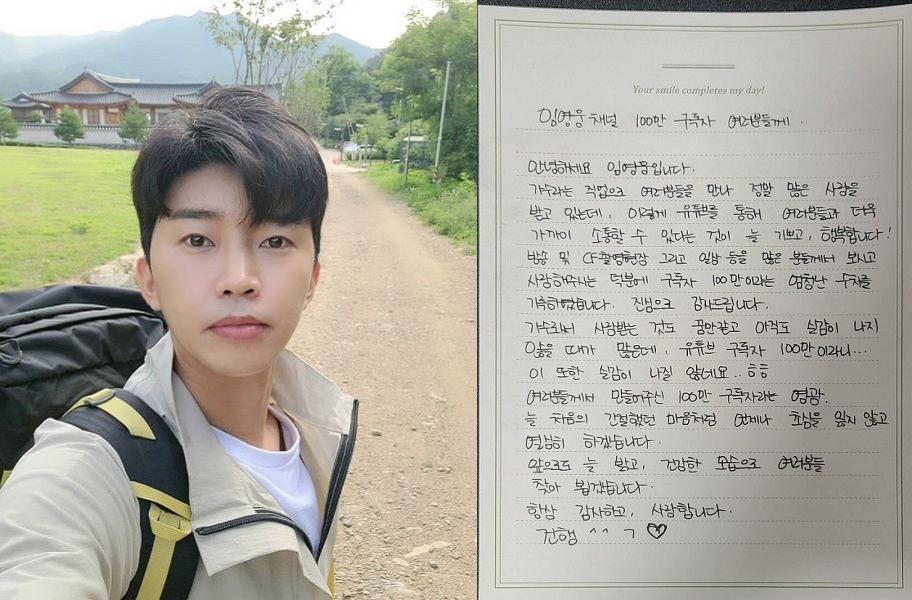 Your smile completes my day!
임영웅 채널 100만 구독자 여러분들께.
안녕하세요 임영웅입니다.
가수라는 직업으로 여러분들을 만나 정말 많은 사랑을
받고 있는데, 이렇게 유튜브를 통해 여러분들과 더욱
가까이 소통할 수 있다는 것이 늘 기쁘고, 행복합니다!
방송 및 CF촬영현장 그리고 일상 등을 많은 분들께서 보시고
사랑해주시는 덕분에 구독자 100만이라는 엄청난 숫자를
기록하였습니다. 진심으로 감사드립니다.
가수로서 사랑받는 것도 꿈만같고 아직도 실감이 나지
않을 때가 많은데, 유튜브 구독자 100만이라니...
이 또한 실감이 나질 않네요..ㅎㅎ
여러분들께서 만들어주신 100만 구독자라는 영광.
늘 처음의 간절했던 마음처럼 언제나 초심을 잃지 않고
열심히 하겠습니다.
앞으로도 늘 밝고, 건강한 모습으로 여러분들
찾아 뵙겠습니다.
항상 감사하고, 사랑합니다.
건행 ^^ ㄱ ♡